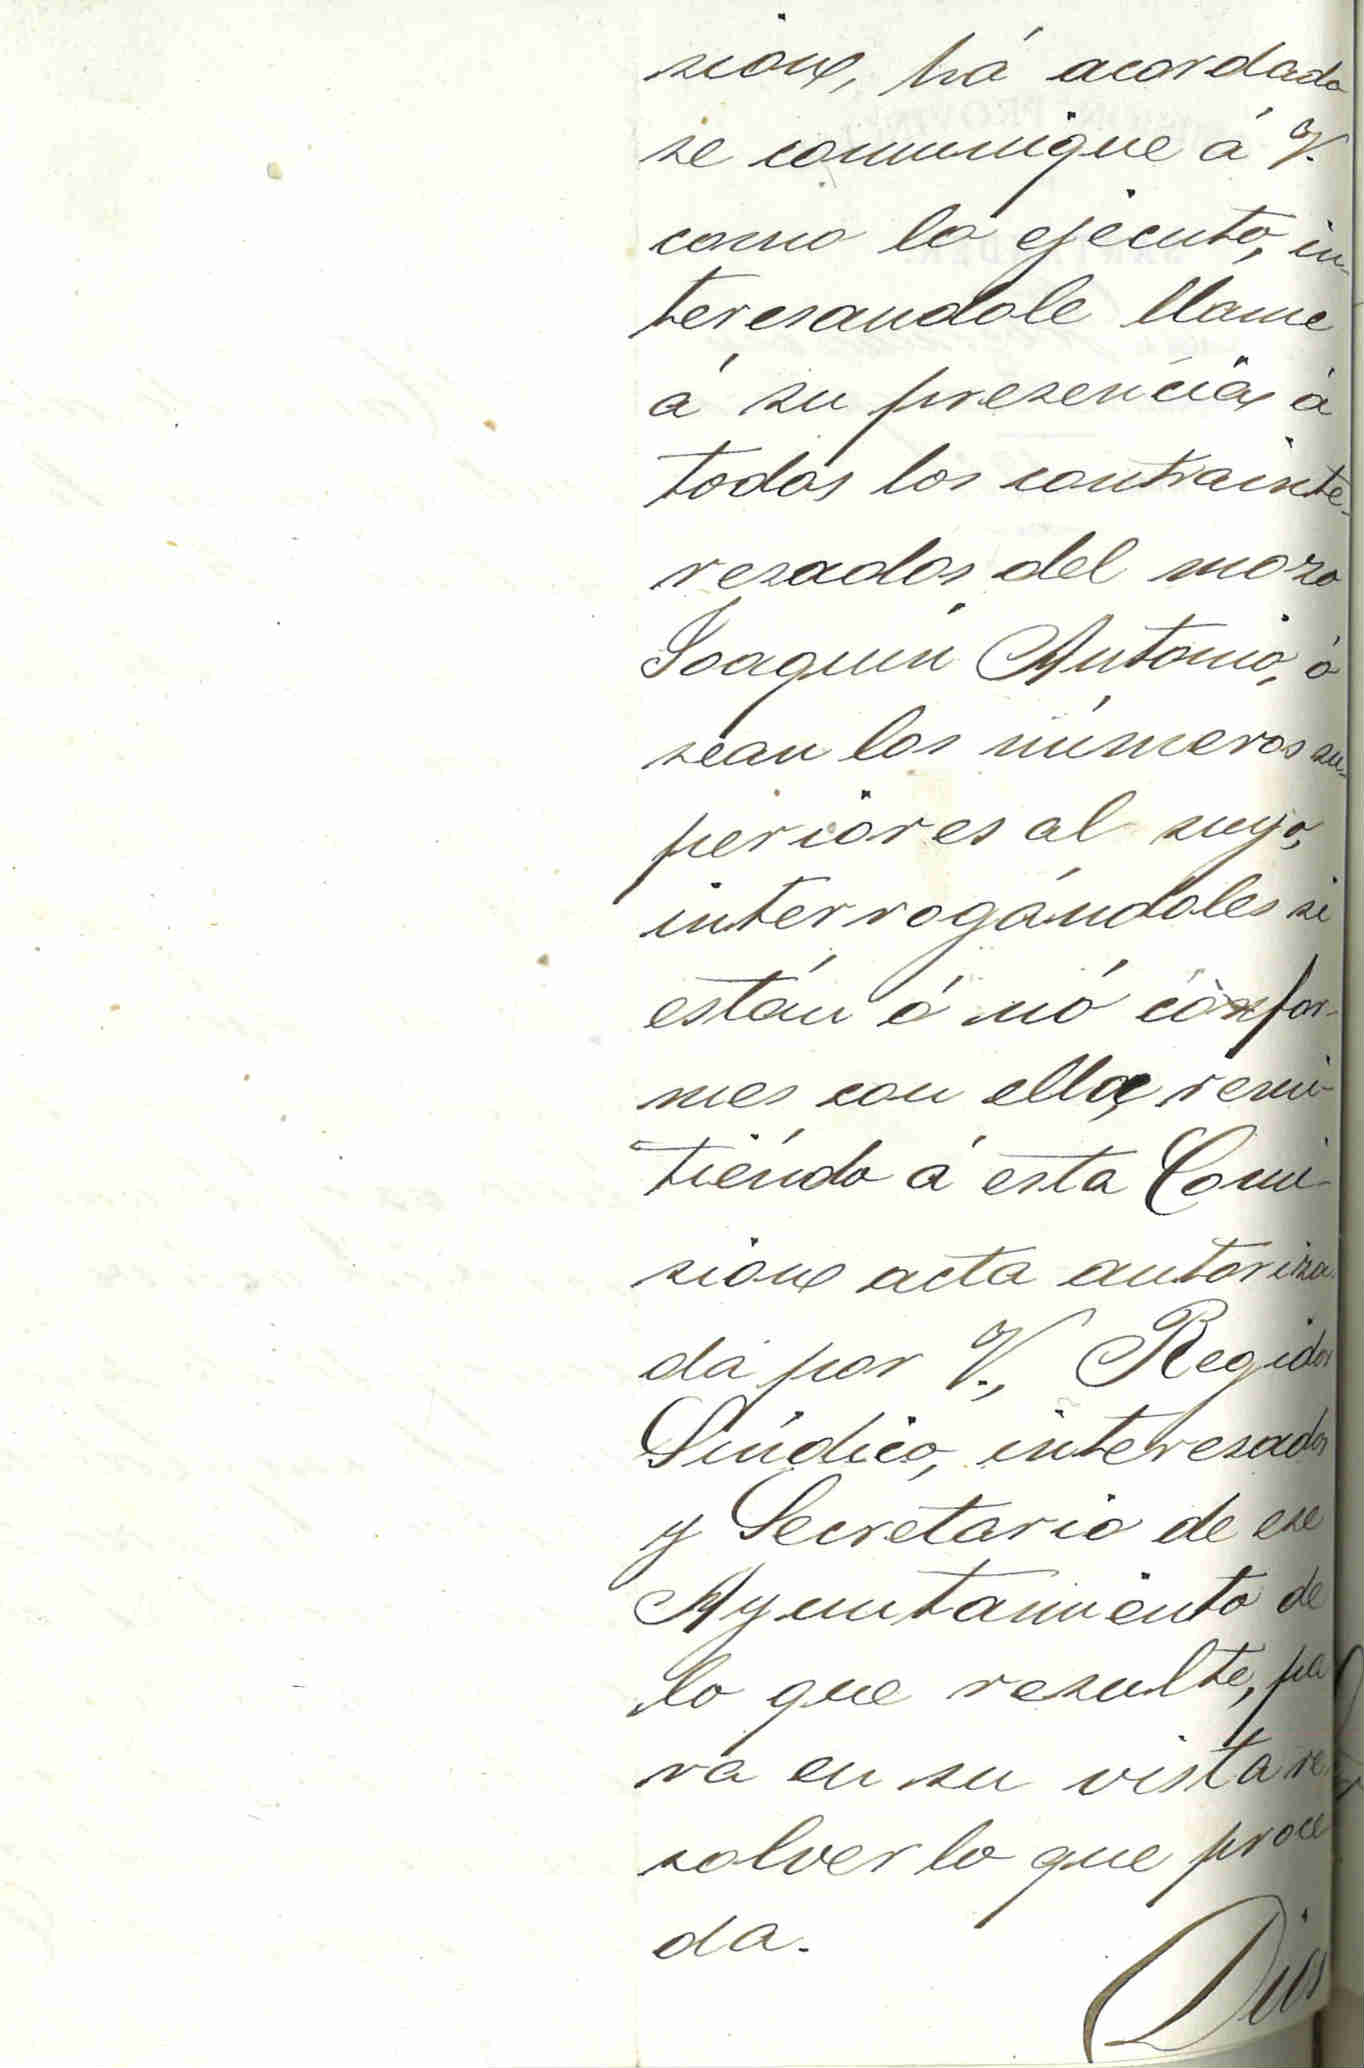 sion, há acordado
se comunique á V.
como lo ejecuto, in-
teresandole llame
á su presencia á
todos los contrainte-
resados del mozo
Joaquín Antonio, ó
sean los números su-
periores al suyo,
interrogándoles si
están ó nó confor-
mes con ella, remi-
tiendo á esta Comi-
sion acta autoriza
da por V., Regidor
Síndico, interesados
y Secretario de ese
Ayuntamiento de
lo que resulte, pa
ra en su vista re
solver lo que proce
da.
Dios